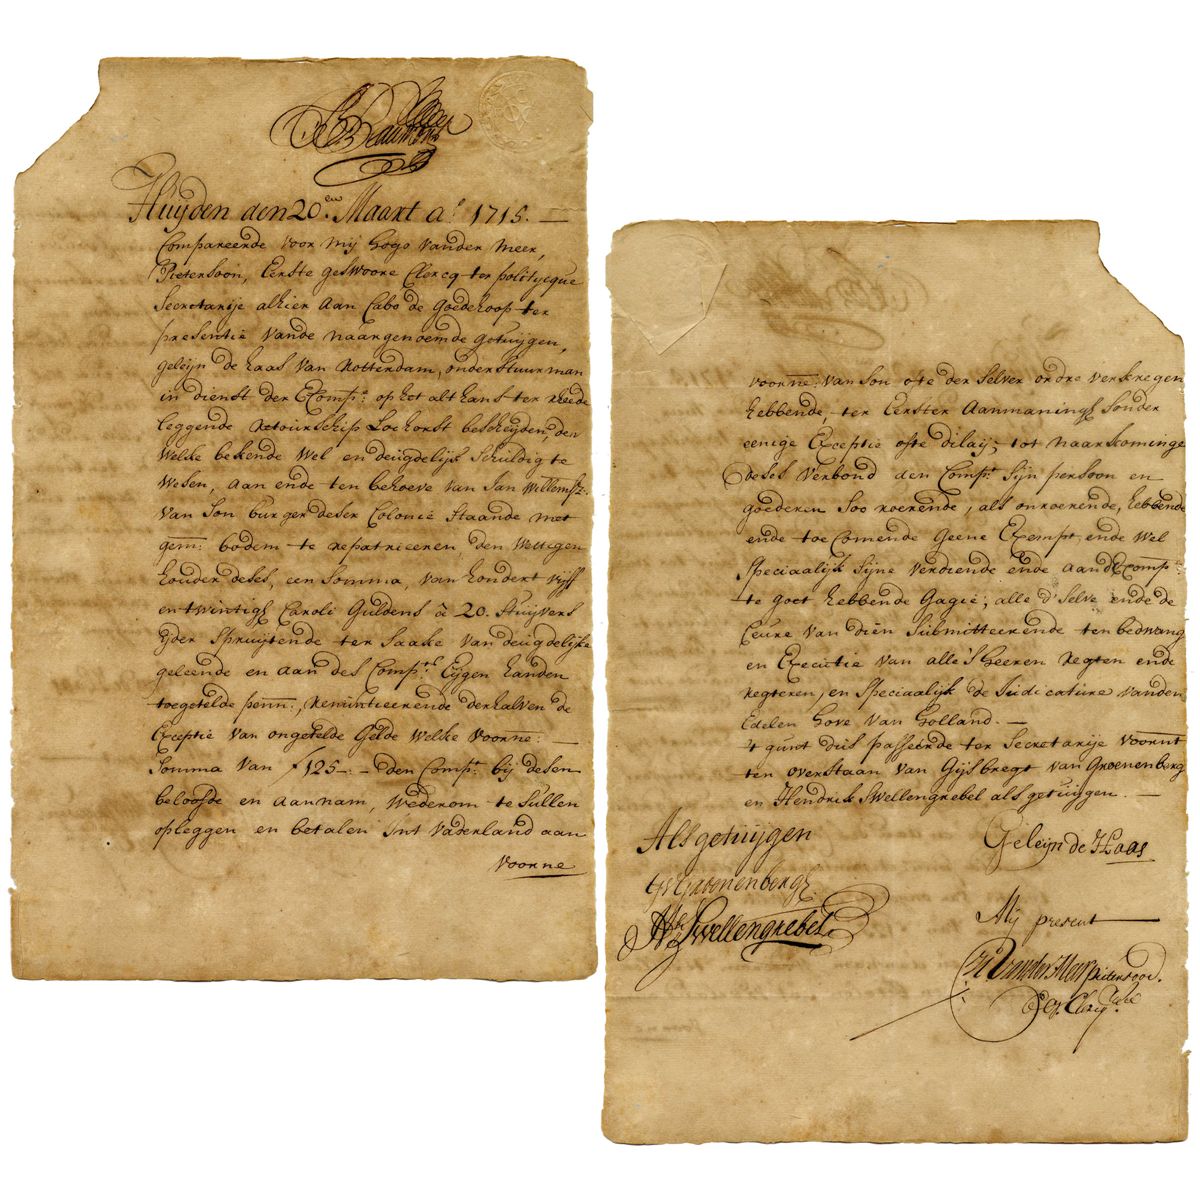 Huijden den 20en. Maart ao. 1715. —
Compareerde voor mij Hogo vander Meer,
Pietersoon, Eerste geswoore Clercq ter politycque
Secretarije alhier aan Cabo de goede hoop ter
presentie vande naargenoemde getuijgen,
geleijn de haas van Rotterdam, onderstuurman
in dienst der EComp:e op het althans ter rheede
leggende retourschip Lochorst bescheijden, den
welke bekende wel en deugdelijk schuldig te
wesen, aan ende ten behoeve van Jan Willemsz:
van Son burger deser Colonie staande met
gem: bodem te repatrieeren, den wettigen
houder deses, een somma, van hondert vijff
entwintigh Caroli guldens à 20. stuijvers
yder spruijtende ter saake van deugdelijke
geleende en aan des Compts Eijgen handen
toegetelde penn:, renuntieerende derhalven de
Exceptie van ongetelde gelde welke voorne: —
somma van f 125 — den Compt bij desen
beloofde en aannam, wederom te sullen
opleggen en betalen int vaderland aan
voorne
voorne: van Son ofte der selver ordre verkregen
hebbende, ter Eerster aanmaningh sonder
eenige Exceptie ofte dilaij; tot naarkominge
deses verbond den Compt sijn persoon en
goederen soo roerende, als onroerende, hebbende
ende toecomende geene Exempt, ende wel
speciaalijk sijne verdiende ende aandEComp:e
te goet hebbende gagie; alle d'selve ende de
Ceure van dien submitteerende ten bedwang
en Executie van alle 's heeren regten ende
regteren, en speciaalijk de Judicature vanden
Edelen hove van holland. —
't gunt dus passeerde ter Secretarije voornt
ten overstaan van Gijsbregt van Groenenberg
en Hendrik Swellengrebel als getuijgen. —
Als getuijgen
Geleijn de Haas
Gv Groenenbergh.
Hk: Swellengrebel
Mij present
H: Vander Meer Pietersoon.